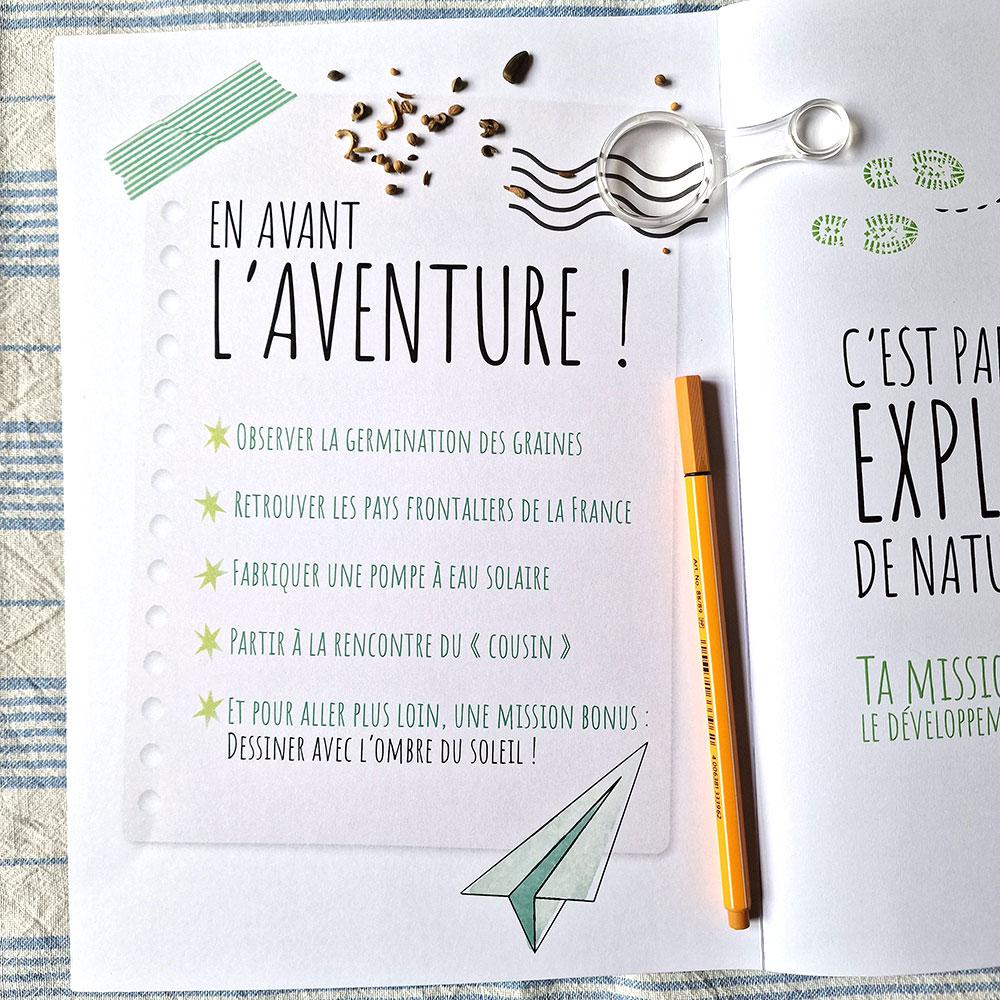 EN AVANT
L'AVENTURE !
OBSERVER LA GERMINATION DES GRAINES
RETROUVER LES PAYS FRONTALIERS DE LA FRANCE
FABRIQUER UNE POMPE À EAU SOLAIRE
PARTIR À LA RENCONTRE DU « COUSIN »
ET POUR ALLER PLUS LOIN, UNE MISSION BONUS :
DESSINER AVEC L'OMBRE DU SOLEIL !
Art. No. 88/89
4 006381 333962
C'EST PA
EXPL
DE NATU
TA MISSIO
LE DÉVELOPPEM